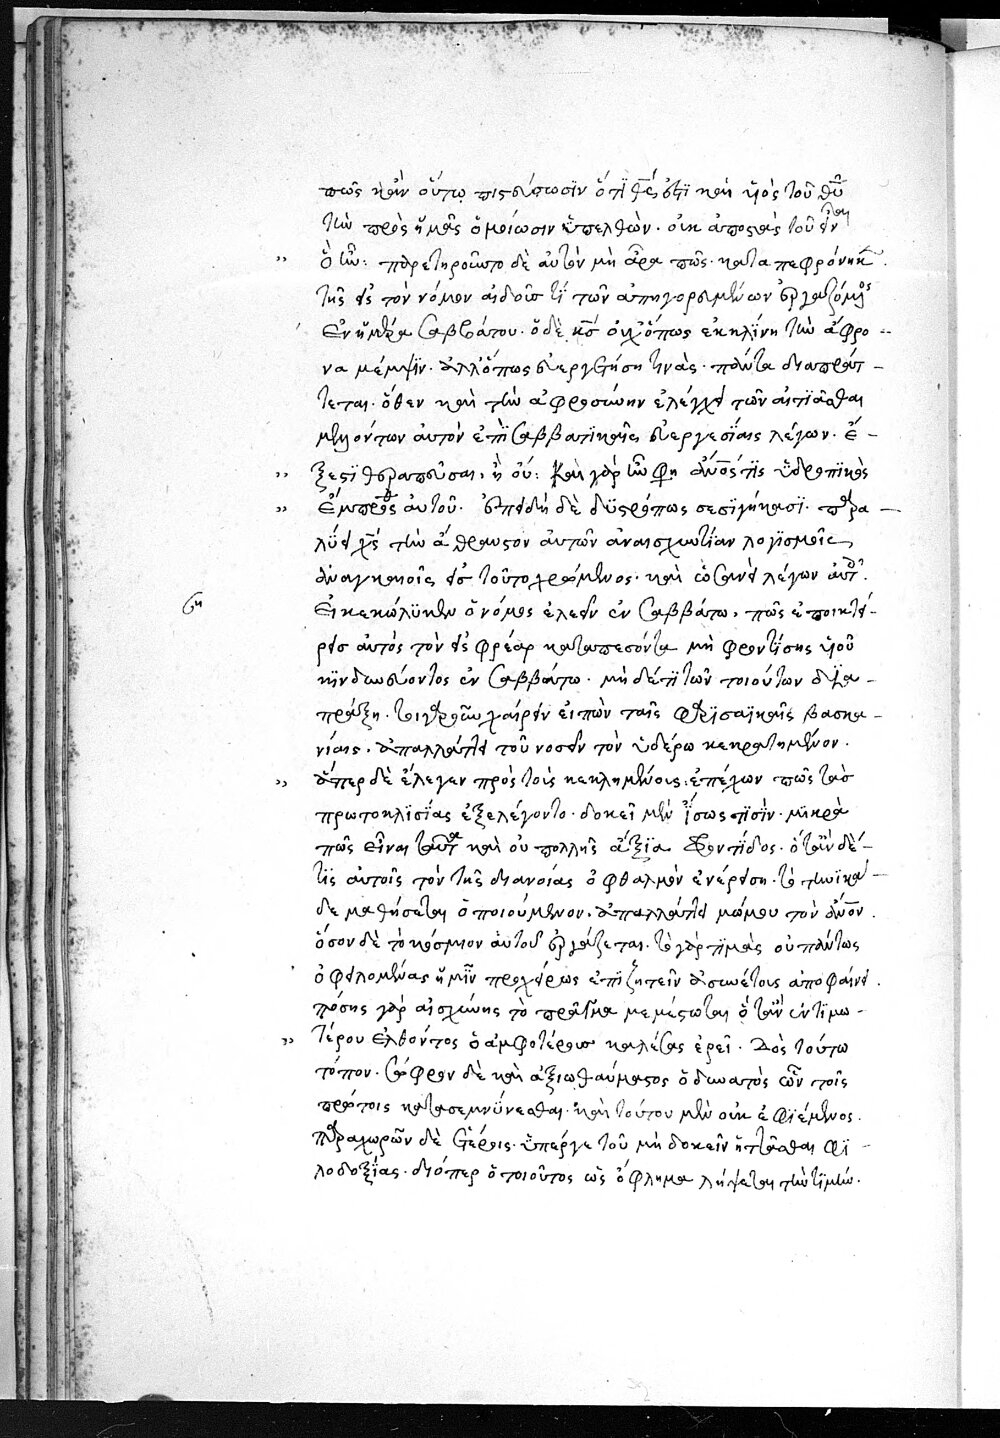 πῶς κἂν οὕτω πιστεύσωσιν ὅτι θς ἐστι καὶ υἱὸς τοῦ θυ
τὴν πρὸς ἡμᾶς ὁμοίωσιν ὑπελθών. οὐκ ἀποστὰς τοῦ εἶναι
ὃ ἦν: παρετηροῦντο δὲ αὐτὸν μὴ ἄρα πως καταπεφρόνηκε
τῆς εἰς τὸν νόμον αἰδοῦς τι τῶν ἀπηγορευμένων ἐργαζόμενος
ἐν ἡμέρα σαββάτου. ὁ δὲ κς οὐχ ὅπως ἐκκλίνη τὴν ἄφρο
να μέμψιν. ἀλλ' ὅπως εὐεργετήση τινὰς. πάντα διαπράτ
τεται. ὅθεν καὶ τὴν ἀφροσύνην ἐλέγχει τῶν αἰτιᾶσθαι
μελλόντων αὐτὸν ἐπὶ σαββατικαῖς εὐεργεσίαις λέγων. ἔ
ξεστι θεραπεῦσαι, ἢ οὔ: Καὶ γὰρ ἦν φη ἄνος τις ὑδρωπικὸς
ἔμπροσθεν αὐτοῦ. ἐπειδὴ δὲ δυστρόπως σεσιγήκασι. παρα
λύει χς τὴν ἄθραυστον αὐτῶν ἀναισχυντίαν λογισμοῖς
ἀναγκαίοις εἰς τοῦτο χρώμενος. καὶ ὡσανεὶ λέγων αὐτοῖς.
Εἰ κεκώλυκεν ὁ νόμος ἐλεεῖν ἐν σαββάτω, πῶς ἐποικτεί
ρεις αὐτὸς τὸν εἰς φρέαρ καταπεσόντα μὴ φροντίσης υἱοῦ
κινδυνεύοντος ἐν σαββάτω. μηδέ τι τῶν τοιούτων δια
πράξη. τοιγαροῦν χαίρειν εἰπὼν ταῖς φαρισαϊκαῖς βασκα
νίαις. ἀπαλλάττει τοῦ νοσεῖν τὸν ὑδέρω κεκρατημένον.
ἅπερ δὲ ἔλεγεν πρὸς τοὺς κεκλημένους ἐπέχων πῶς τὰς
πρωτοκλισίας ἐξελέγοντο. δοκεῖ μὲν ἴσως τισὶν. μικρά
πως εἶναι ταῦτα καὶ οὐ πολλῆς ἄξια φροντίδος. ὅταν δέ
τις αὐτοῖς τὸν τῆς διανοίας ὀφθαλμὸν ἐνέρειση. τὸ τηνικά
δε μαθήσεται ὁποιούμενον. ἀπαλλάττει μώμου τὸν ἄνον.
ὅσον δὲ τὸ κόσμιον αὐτοῦ ἐργάζεται. τὸ γὰρ τιμὰς οὐ πάντως
ὀφειλομένας ἡμῖν προχείρως ἐπιζητεῖν ἀσυνέτους ἀποφαίνει.
πόσης γὰρ αἰσχύνης τὸ πρᾶγμα μεμέστωται ὅταν ἐντιμω
τέρου ἐλθόντος ὁ ἀμφοτέρους καλέσας ἐρεῖ. Δὸς τούτω
τόπον. σῶφρον δὲ καὶ ἀξιοθαύμαστος ὁ δυνατὸς ὢν τοῖς
πρώτοις κατασεμνύνεσθαι. καὶ τούτου μὲν οὐκ ἐφιέμενος.
παραχωρῶν δὲ ἑτέροις. ὑπὲρ γε τοῦ μὴ δοκεῖν ἡττᾶσθαι φι
λοδοξίας. διόπερ ὁ τοιοῦτος ὡς ὄφλημα λήψεται τὴν τιμήν.